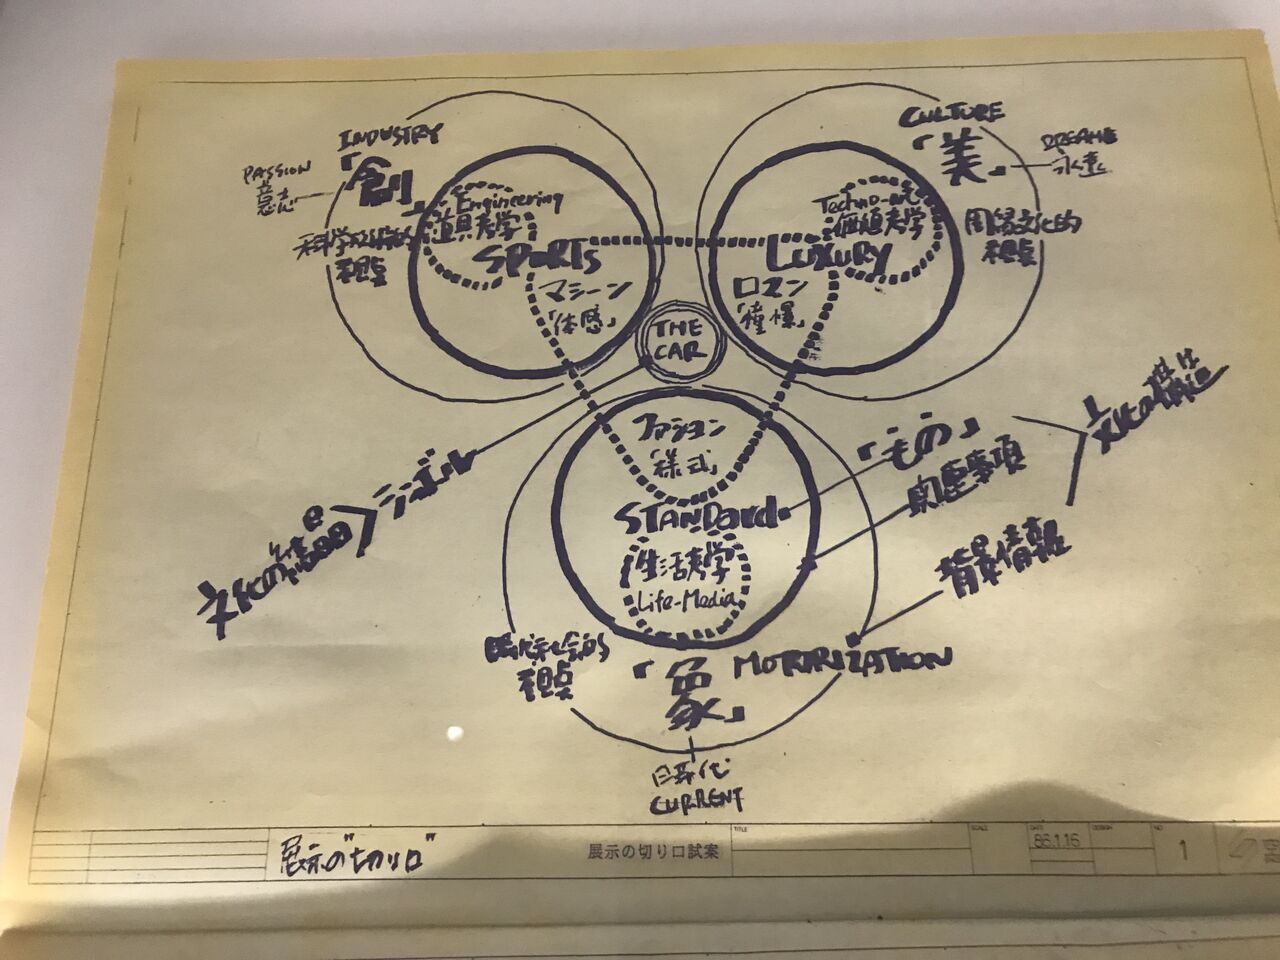 INDUSTRY
「創」
PASSION
意志
科学技術的
視点
Engineering
道具考学
SPORTS
マシーン
「体感」
CULTURE
「美」
永遠
Techno-art
価値考学
LUXURY
ロマン
「憧憬」
視点
THE
CAR
ファッション
「様式」
STANDARD
生活考学
Life-Media
時代社会的
視点
「象」
MOTORIZATION
時代
CURRENT
「もの」
関連事項
背景情報
文化の構造
文化の
展示の"切り口"
展示の切り口試案
TITLE
SCALE
DATE
86.1.16
DESIGN
NO
1